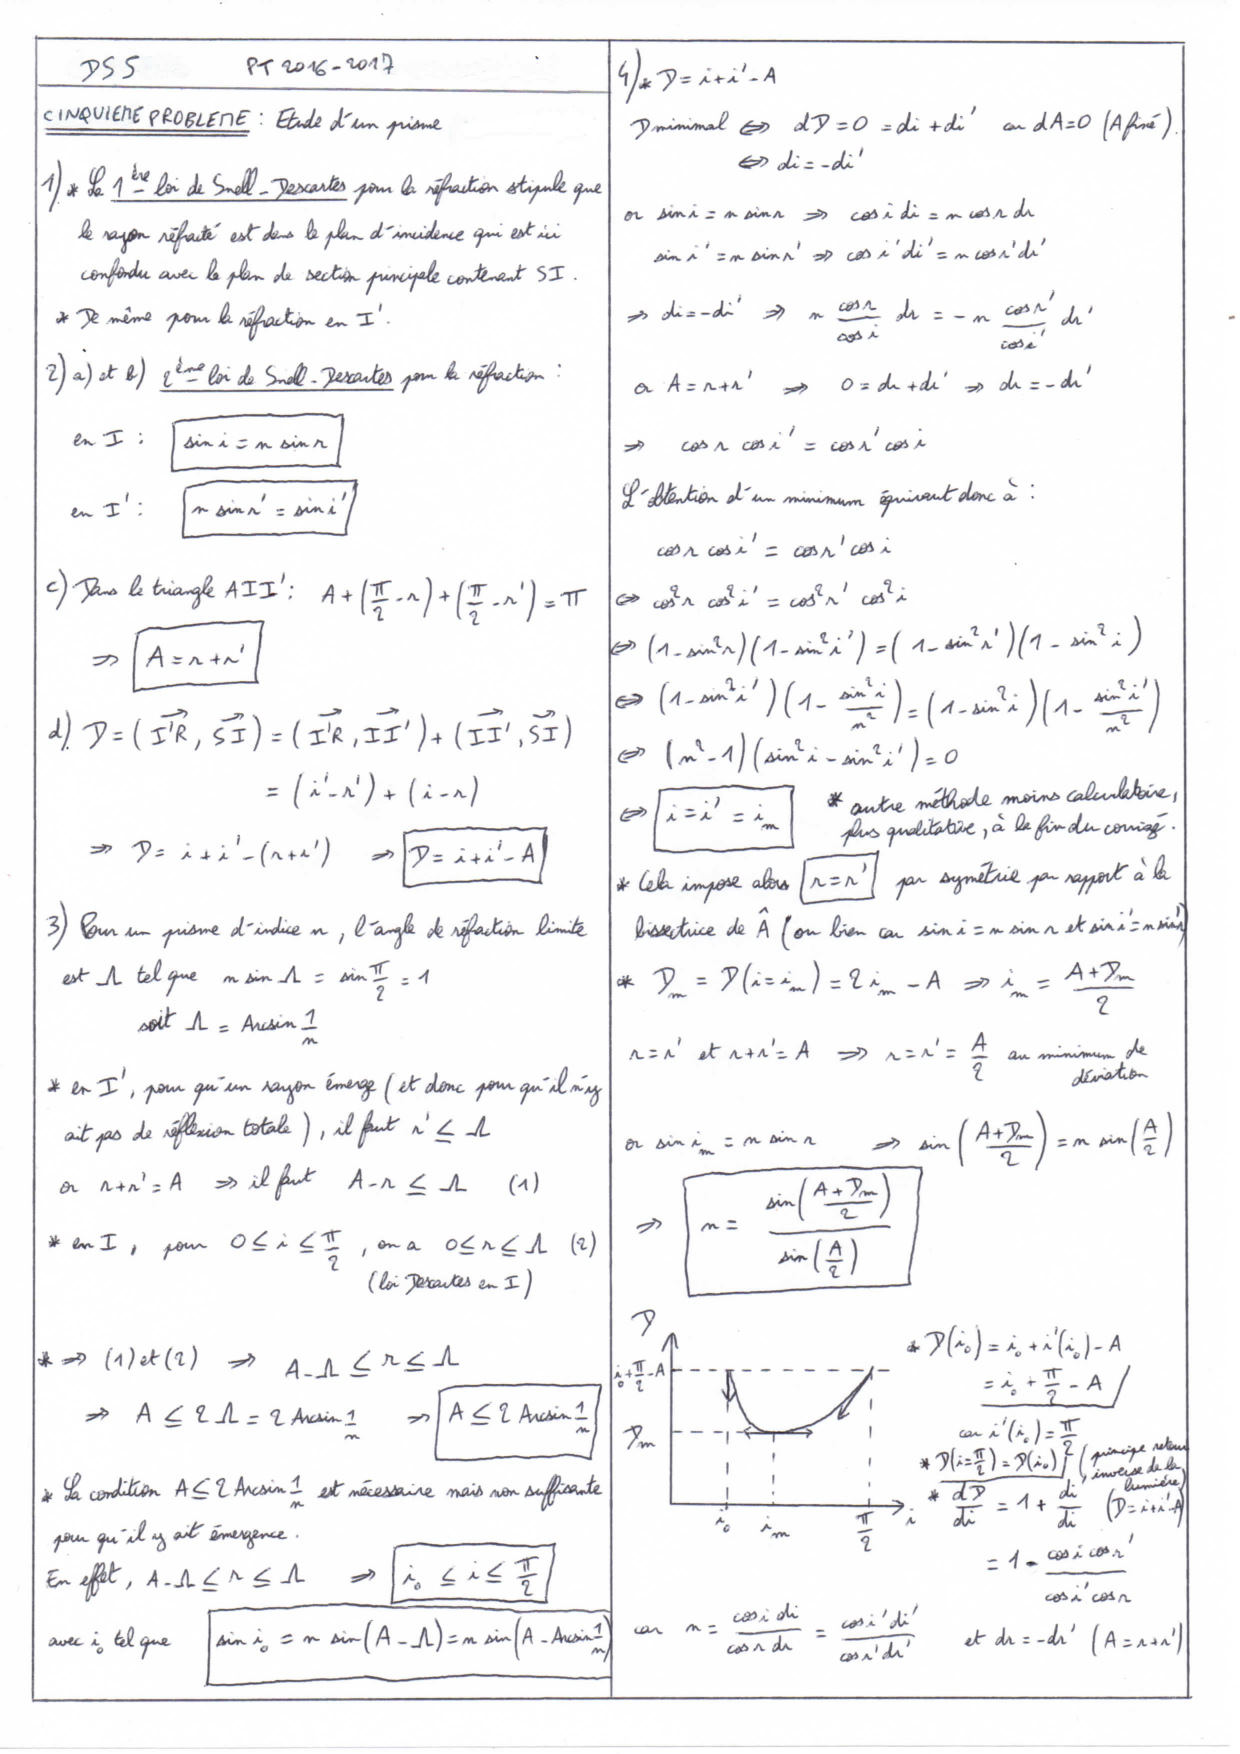 DS 5 PT 2016-2017
CINQUIEME PROBLEME : Etude d'un prisme
1) * La 1ère loi de Snell-Descartes pour la réfraction stipule que
le rayon réfracté est dans le plan d'incidence qui est ici
confondu avec le plan de section principale contenant SI.
* De même pour la réfraction en I'.
2) a) et b) 2ème loi de Snell-Descartes pour la réfraction :
en I : sin i = n sin r
en I' : n sin r' = sin i'
c) Dans le triangle AII' : A + (π/2 - r) + (π/2 - r') = π
⇒ A = r + r'
d) D = (I'R→, SI→) = (I'R→, II'→) + (II'→, SI→)
= (i' - r') + (i - r)
⇒ D = i + i' - (r + r') ⇒ D = i + i' - A
3) Pour un prisme d'indice n, l'angle de réfraction limite
est Λ tel que n sin Λ = sin π/2 = 1
soit Λ = Arcsin 1/n
* en I', pour qu'un rayon émerge (et donc pour qu'il n'y
ait pas de réflexion totale), il faut r' ≤ Λ
or r + r' = A ⇒ il faut A - r ≤ Λ (1)
* en I, pour 0 ≤ i ≤ π/2, on a 0 ≤ r ≤ Λ (2)
(loi Descartes en I)
* ⇒ (1) et (2) ⇒ A - Λ ≤ r ≤ Λ
⇒ A ≤ 2 Λ = 2 Arcsin 1/n ⇒ A ≤ 2 Arcsin 1/n
* La condition A ≤ 2 Arcsin 1/n est nécessaire mais non suffisante
pour qu'il y ait émergence.
En effet, A - Λ ≤ r ≤ Λ ⇒ i₀ ≤ i ≤ π/2
avec i₀ tel que sin i₀ = n sin(A - Λ) = n sin(A - Arcsin 1/n)
4) * D = i + i' - A
D minimal ⇔ dD = 0 = di + di' car dA = 0 (A fixé).
⇔ di = -di'
or sin i = n sin r ⇒ cos i di = n cos r dr
sin i' = n sin r' ⇒ cos i' di' = n cos r' dr'
⇒ di = -di' ⇒ n cos r/cos i dr = -n cos r'/cos i' dr'
or A = r + r' ⇒ 0 = dr + dr' ⇒ dr = -dr'
⇒ cos r cos i' = cos r' cos i
L'obtention d'un minimum équivaut donc à :
cos r cos i' = cos r' cos i
⇔ cos²r cos²i' = cos²r' cos²i
⇔ (1 - sin²r)(1 - sin²i') = (1 - sin²r')(1 - sin²i)
⇔ (1 - sin²i')(1 - sin²i/n²) = (1 - sin²i)(1 - sin²i'/n²)
⇔ (n² - 1)(sin²i - sin²i') = 0
⇔ i = i' = iₘ * autre méthode moins calculatoire,
plus qualitative, à la fin du corrigé.
* Cela impose alors r = r' par symétrie par rapport à la
bissectrice de Â (ou bien car sin i = n sin r et sin i' = n sin r')
* Dₘ = D(i = iₘ) = 2 iₘ - A ⇒ iₘ = (A + Dₘ)/2
r = r' et r + r' = A ⇒ r = r' = A/2 au minimum de
déviation
or sin iₘ = n sin r ⇒ sin((A + Dₘ)/2) = n sin(A/2)
⇒ n = sin((A + Dₘ)/2) / sin(A/2)
D
i₀ + π/2 - A
Dₘ
i₀ iₘ π/2 i
* D(i₀) = i₀ + i'(i₀) - A
= i₀ + π/2 - A
car i'(i₀) = π/2
* D(i = π/2) = D(i₀) (principe retour
inverse de la
lumière)
* dD/di = 1 + di'/di (D = i + i' - A)
= 1 - cos i cos r'/cos i' cos r
car n = cos i di/cos r dr = cos i' di'/cos r' dr' et dr = -dr' (A = r + r')